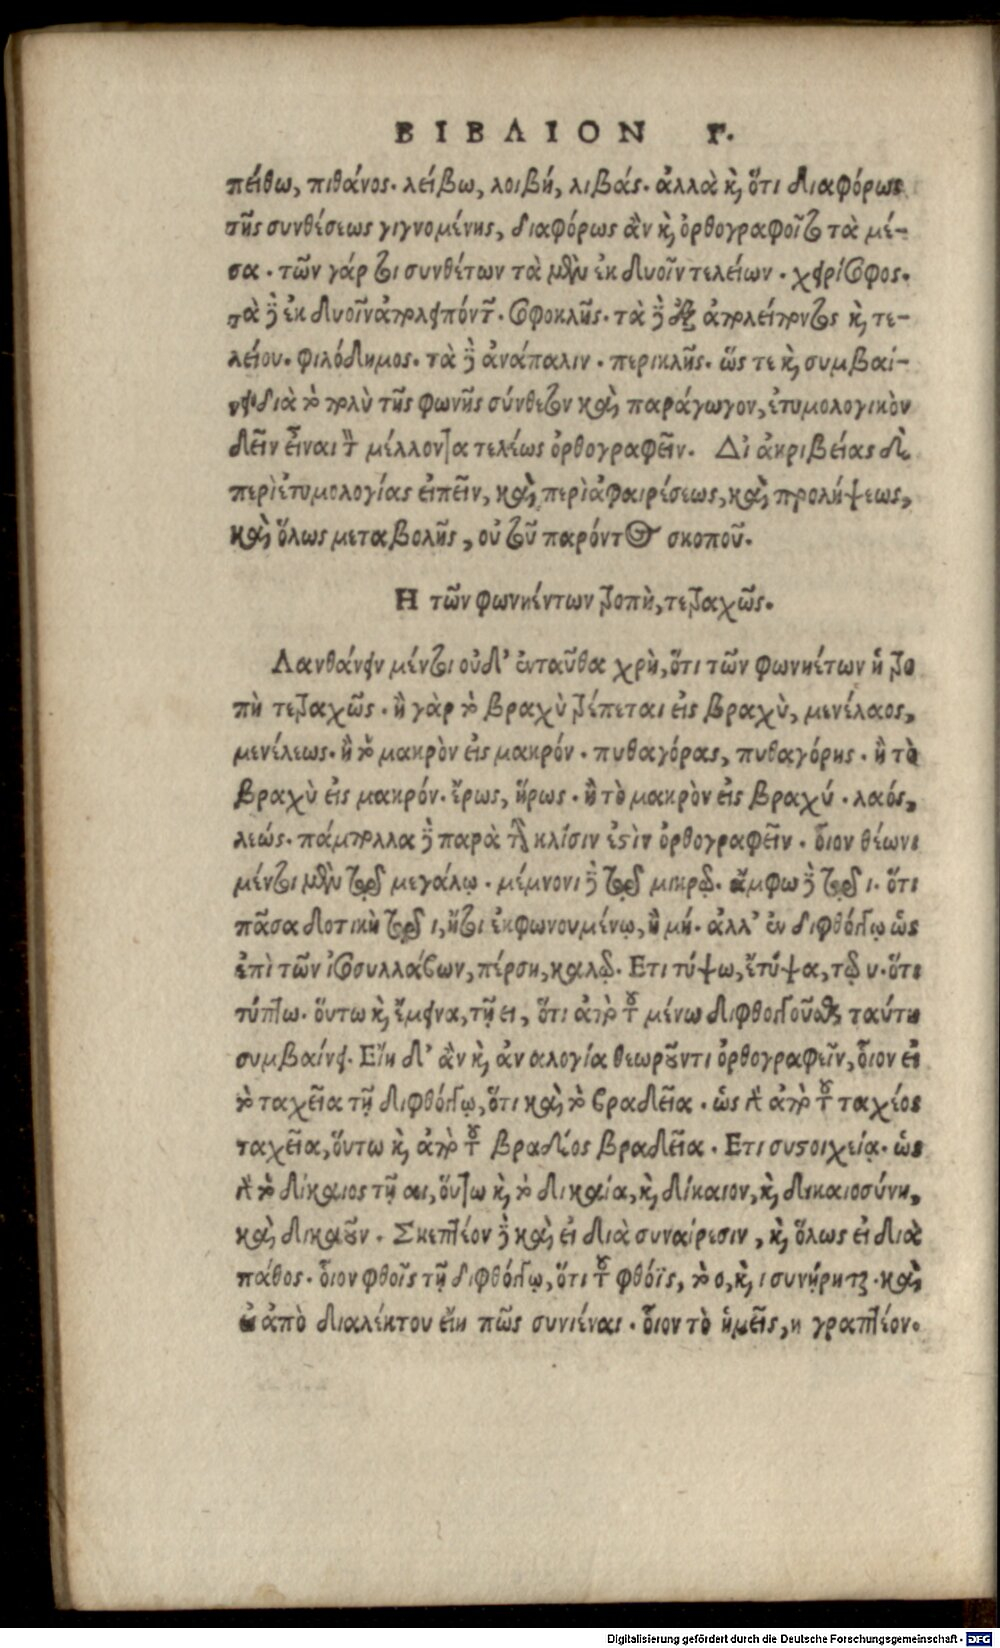 ΒΙΒΛΙΟΝ Γ.
πείθω, πιθάνος. λείβω, λοιβή, λιβάς. ἀλλὰ κ̀, ὅτι διαφόρως
τῆς συνθέσεως γιγνομένης, διαφόρως ἂν κ̀, ὀρθογραφοῖτο τὰ μέ-
σα. τῶν γάρ τοι συνθέτων τὰ μὲν ἐκ δυοῖν τελείων. χειρίσοφος.
τὰ δὲ ἐκ δυοῖν ἀπολειπόντων. σοφοκλῆς. τὰ δὲ ἐξ ἀπολείποντος κ̀, τε-
λείου. φιλόδημος. τὰ δὲ ἀνάπαλιν. περικλῆς. ὥς τε κ̀, συμβαί-
νει διὰ τὸ πολὺ τῆς φωνῆς σύνθετον καὶ παράγωγον, ἐτυμολογικὸν
δεῖν εἶναι τὸν μέλλοντα τελέως ὀρθογραφεῖν. Δι ἀκριβείας δὲ
περὶ ἐτυμολογίας εἰπεῖν, καὶ περὶ ἀφαιρέσεως, καὶ προλήψεως,
καὶ ὅλως μεταβολῆς, οὐ τοῦ παρόντος σκοποῦ.
Η τῶν φωνηέντων ῥοπὴ, τετραχῶς.
Λανθάνειν μέντοι οὐδ' ἐνταῦθα χρὴ, ὅτι τῶν φωνηέτων ἡ ῥο
πὴ τετραχῶς. ἢ γὰρ τὸ βραχὺ τρέπεται εἰς βραχὺ, μενέλαος,
μενέλεως. ἢ τὸ μακρὸν εἰς μακρόν. πυθαγόρας, πυθαγόρης. ἢ τὸ
βραχὺ εἰς μακρόν. ἔρως, ἥρως. ἢ τὸ μακρὸν εἰς βραχύ. λαός,
λεώς. πάμπολλα δὲ παρὰ τὴν κλίσιν ἐστὶν ὀρθογραφεῖν. οἷον θέωνι
μέντοι μὲν τῷ μεγάλῳ. μέμνονι δὲ τῷ μικρῷ. ἄμφω δὲ τῷ ι. ὅτι
πᾶσα δοτικὴ τῷ ι, ἤτοι ἐκφωνουμένῳ, ἢ μή. ἀλλ' ἐν διφθόγγῳ ὡς
ἐπὶ τῶν ἰσοσυλλάβων, πέρση, καλῷ. Ετι τύψω, ἔτυψα, τῷ υ. ὅτι
τύπτω. οὕτω κ̀, ἔμεινα, τῇ ει, ὅτι ἀπὸ τοῦ μένω διφθογγοῦσθαι ταύτη
συμβαίνει. Εἴη δ' ἂν κ̀, ἀναλογία θεωροῦντι ὀρθογραφεῖν, οἷον εἰ
τὸ ταχεῖα τῇ διφθόγγῳ, ὅτι καὶ τὸ βραδεῖα. ὡς γὰρ ἀπὸ τοῦ ταχέος
ταχεῖα, οὕτω κ̀, ἀπὸ τοῦ βραδέος βραδεῖα. Ετι συστοιχεία. ὡς
γὰρ τὸ δίκαιος τῇ αι, οὕτω κ̀, τὸ δικαία, κ̀, δίκαιον, κ̀, δικαιοσύνη,
καὶ δικαιοῦν. Σκεπτέον δὲ καὶ εἰ διὰ συναίρεσιν, κ̀, ὅλως εἰ διὰ
πάθος. οἷον φθοῖς τῇ διφθόγγῳ, ὅτι τοῦ φθόϊς, τὸ ο, κ̀, ι συνῄρηται. καὶ
ἀπὸ διαλέκτου εἴη πῶς συνιέναι. οἷον τὸ ἡμεῖς, η γραπτέον.
Digitalisierung gefördert durch die Deutsche Forschungsgemeinschaft - DFG